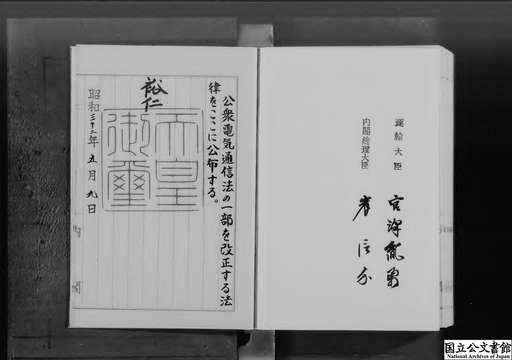 公衆電気通信法の一部を改正する法
律をここに公布する。
裕仁
天皇
御璽
昭和三十二年五月九日
内閣総理大臣
岸信介
運輸大臣
宮澤胤勇
国立公文書館
National Archives of Japan